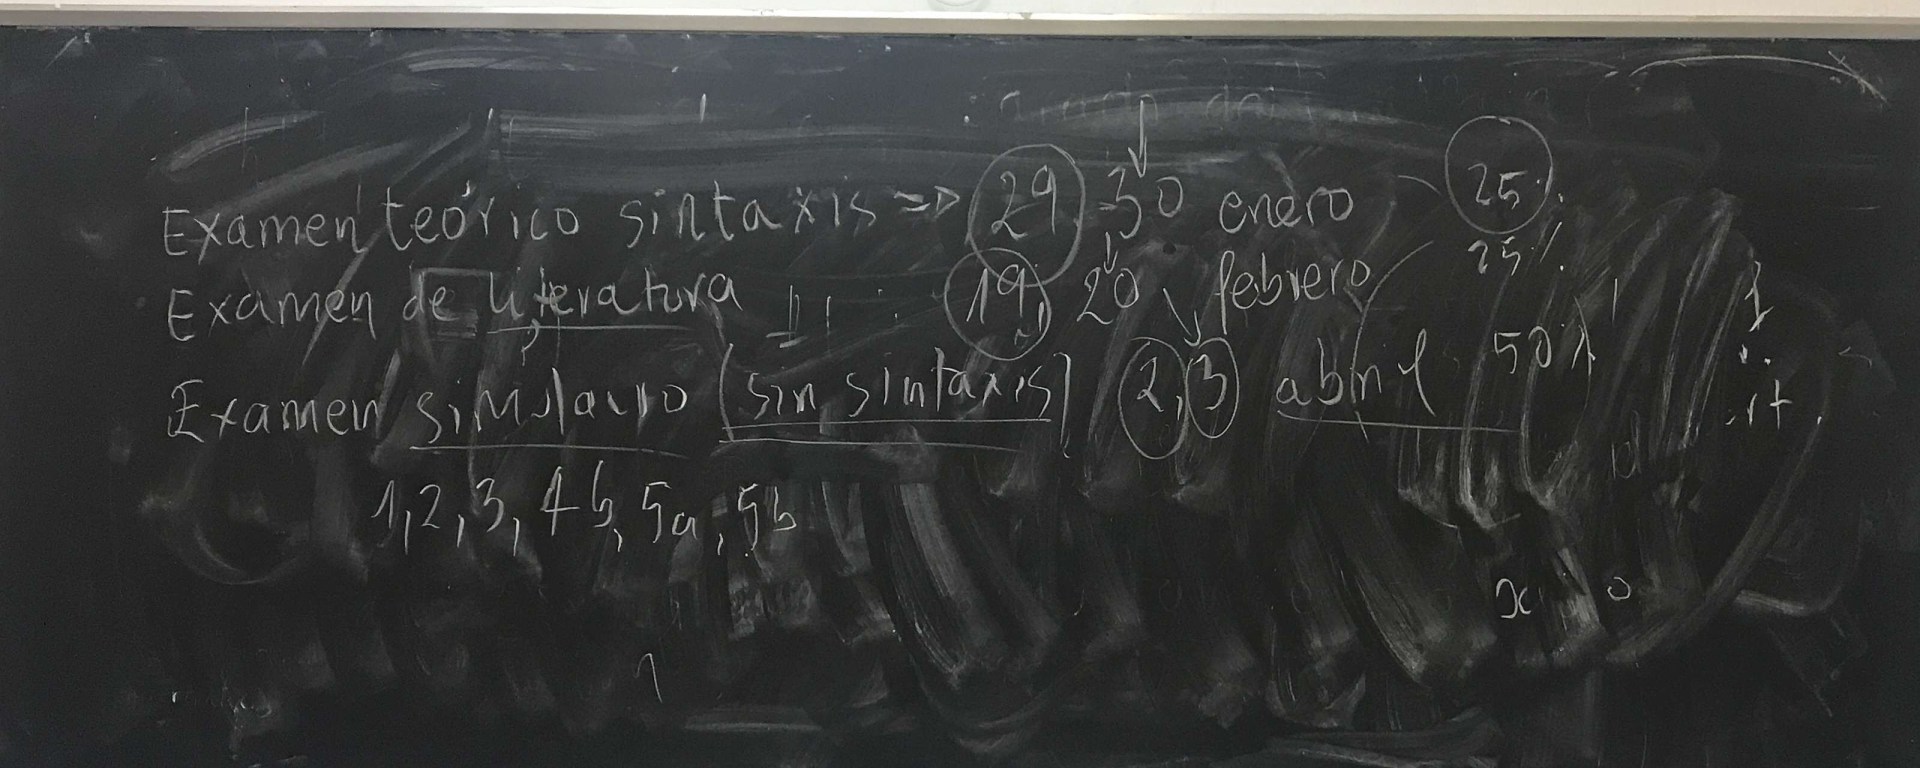 Examen teórico sintaxis => 29 30 enero 25%
Examen de literatura 19, 20 febrero 25%
Examen simulacro (sin sintaxis) 2, 3 abril 50%
1, 2, 3, 4b, 5a, 5b